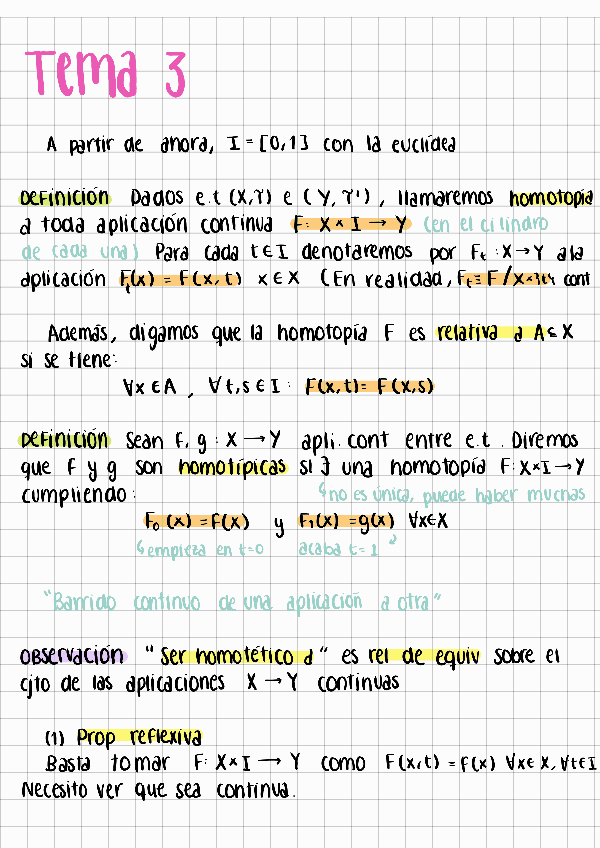 Tema 3
A partir de ahora, I = [0,1] con la euclídea
DEFINICIÓN Dados e.t (X,τ) e (Y, τ'), llamaremos homotopía
a toda aplicación continua F: X×I → Y (en el cilindro
de cada una) Para cada t∈I denotaremos por Ft : X→Y a la
aplicación Ft(x) = F(x,t) x∈X (En realidad, Ft = F/X×{t} cont
Además, digamos que la homotopía F es relativa a A⊆X
si se tiene:
∀x∈A , ∀t,s∈I : F(x,t) = F(x,s)
DEFINICIÓN Sean f, g : X → Y apli. cont entre e.t. Diremos
que f y g son homotípicas si ∃ una homotopía F: X×I→Y
cumpliendo: ↳no es única, puede haber muchas
F₀(x) = f(x) y F₁(x) = g(x) ∀x∈X
↳empieza en t=0 acaba t=1
"Barrido continuo de una aplicación a otra"
OBSERVACIÓN "Ser homotético a" es rel de equiv sobre el
cjto de las aplicaciones X → Y continuas
(1) Prop reflexiva
Basta tomar F: X×I → Y como F(x,t) = f(x) ∀x∈X, ∀t∈I
Necesito ver que sea continua.